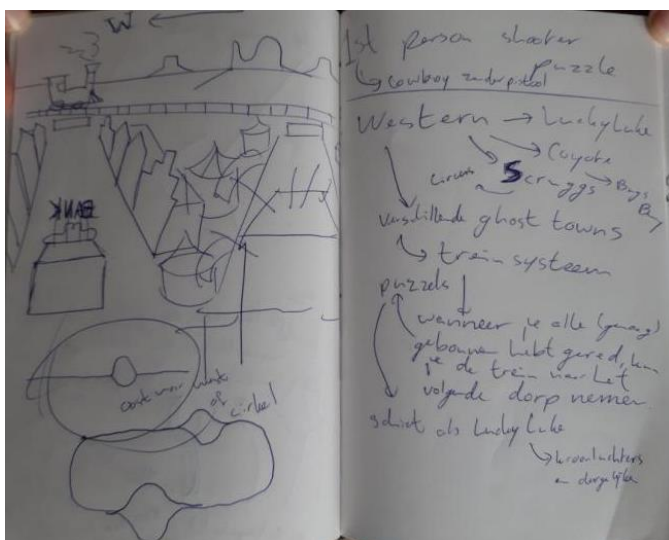 W
BANK
oost naar west
of
cirkel
1st person shooter
puzzle
↳ cowboy zonder pistool
Western → Lucky Luke
→ Coyote
→ Scruggs → Bugs
Bunny
Circus
verschillende ghost towns
↳ trein systeem
puzzels
wanneer je alle (genoeg)
gebouwen hebt gered, kan
je de trein naar het
volgende dorp nemen.
schiet als Lucky Luke
↳ kroonluchters
en dergelijke